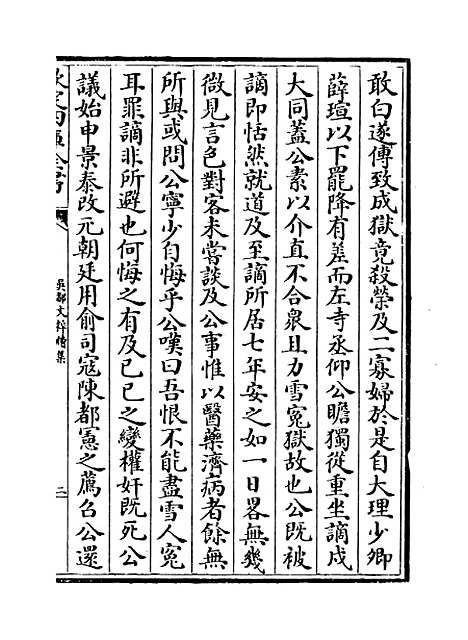 敢白遂傅致成獄竟殺榮及二寡婦於是自大理少卿
薛瑄以下罷降有差而左寺丞仰公瞻獨從重坐謫戍
大同蓋公素以介直不合衆且力雪寃獄故也公既被
謫即恬然就道及至謫所居七年安之如一日畧無幾
微見言色對客未嘗談及公事惟以醫藥濟病者餘無
所與或問公寧少自悔乎公嘆曰吾恨不能盡雪人寃
耳罪謫非所避也何悔之有及己巳之變權奸既死公
議始申景泰改元朝廷用俞司寇陳都憲之薦召公還
欽定四庫全書
吳都文粹續集
二